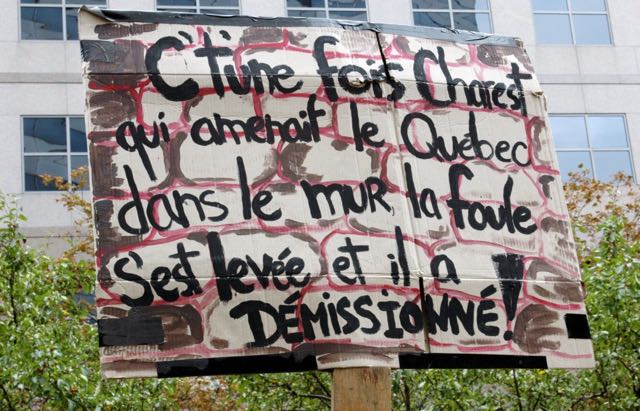 C't'une fois Charest
qui amenait le Québec
dans le mur, la foule
s'est levée et il a
DÉMISSIONNÉ!